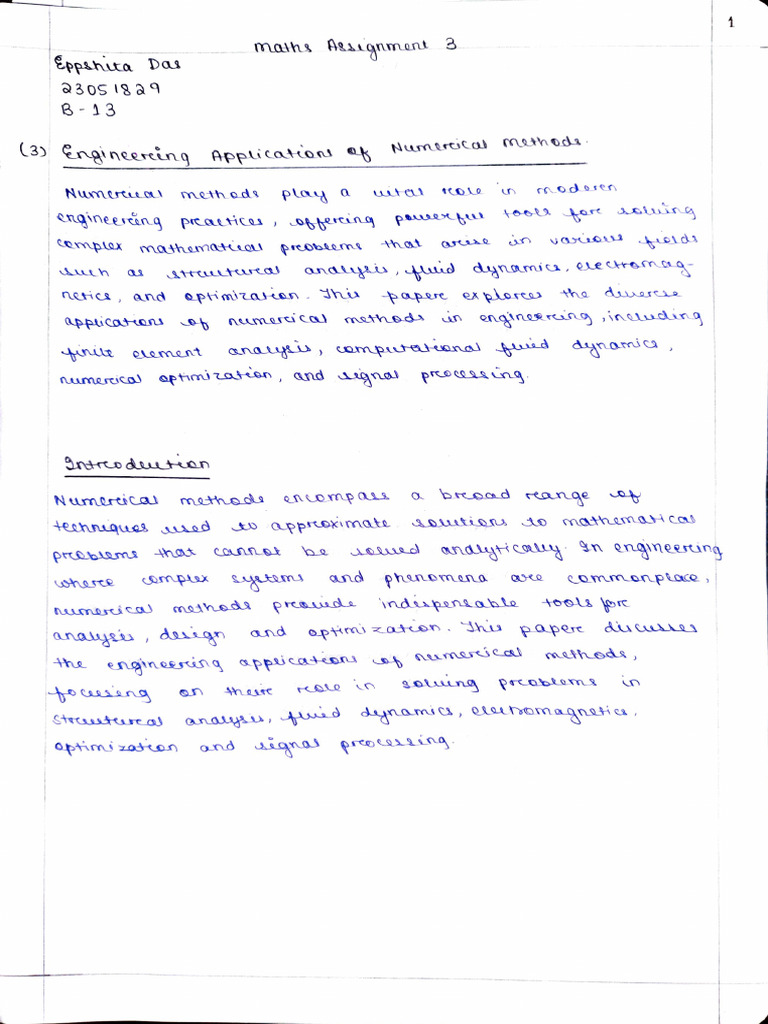 1
Maths Assignment 3
Eppshita Das
23051829
B-13
(3) Engineering Applications of Numerical Methods.
Numerical methods play a vital role in modern
engineering practices, offering powerful tools for solving
complex mathematical problems that arise in various fields
such as structural analysis, fluid dynamics, electromag-
netics, and optimization. This paper explores the diverse
applications of numerical methods in engineering, including
finite element analysis, computational fluid dynamics,
numerical optimization, and signal processing.
Introduction
Numerical methods encompass a broad range of
techniques used to approximate solutions to mathematical
problems that cannot be solved analytically. In engineering
where complex systems and phenomena are commonplace,
numerical methods provide indispensable tools for
analysis, design and optimization. This paper discusses
the engineering applications of numerical methods,
focusing on their role in solving problems in
structural analysis, fluid dynamics, electromagnetics,
optimization and signal processing.